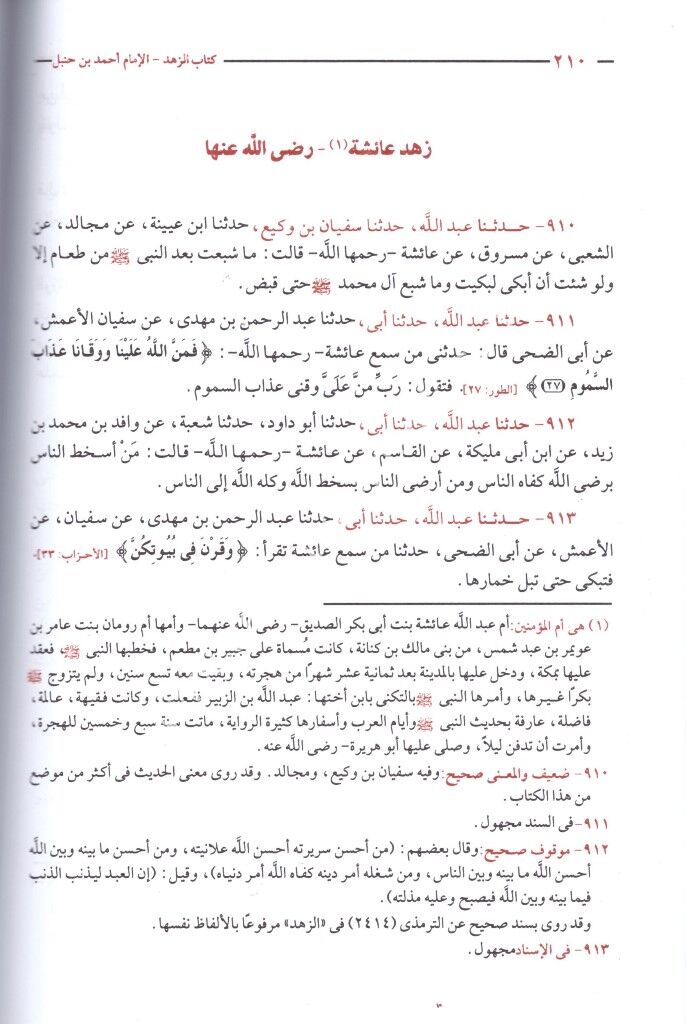 ٢١٠ كتاب الزهد - الإمام أحمد بن حنبل
زهد عائشة(١) - رضى اللَّه عنها
٩١٠- حـدثـنا عبد اللَّه، حدثنا سفيان بن وكيع، حدثنا ابن عيينة، عن مجالد، عن
الشعبى، عن مسروق، عن عائشة -رحمها اللَّه- قالت: ما شبعت بعد النبى ﷺ من طعام إلا
ولو شئت أن أبكى لبكيت وما شبع آل محمد ﷺ حتى قبض.
٩١١- حدثنا عبد اللَّه، حدثنا أبى، حدثنا عبد الرحمن بن مهدى، عن سفيان الأعمش،
عن أبى الضحى قال: حدثنى من سمع عائشة- رحمها اللَّه-: ﴿ فَمَنَّ اللَّهُ عَلَيْنَا وَوَقَانَا عَذَابَ
السَّمُومِ (٢٧) ﴾ [الطور: ٢٧]. فتقول: رَبِّ مَنَّ عَلَىَّ وقنى عذاب السموم.
٩١٢- حدثنا عبد اللَّه، حدثنا أبى، حدثنا أبو داود، حدثنا شعبة، عن وافد بن محمد بن
زيد، عن ابن أبى مليكة، عن القـاسم، عن عائشـة -رحـمهـا اللَّه- قالت: مَنْ أسـخط الناس
برضى اللَّه كفاه الناس ومن أرضى الناس بسخط اللَّه وكله اللَّه إلى الناس.
٩١٣- حـدثـنا عبد اللَّه، حدثنا أبى، حدثنا عبد الرحمن بن مهدى، عن سفيان، عن
الأعمش، عن أبى الضحى، حدثنا من سمع عائشة تقرأ: ﴿ وَقَرْنَ فِى بُيُوتِكُنَّ ﴾ [الأحزاب: ٣٣].
فتبكى حتى تبل خمارها.
(١) هى أم المؤمنين: أم عبد اللَّه عائشة بنت أبى بكر الصديق- رضى اللَّه عنهما- وأمها أم رومان بنت عامر بن
عويمر بن عبد شمس، من بنى مالك بن كنانة، كانت مُسماة على جبير بن مطعم، فخطبها النبى ﷺ، فعقد
عليها بمكة، ودخل عليها بالمدينة بعد ثمانية عشر شهرًا من هجرته، وبقيت معه تسع سنين، ولم يتزوج ﷺ
بكرًا غـيـرها، وأمـرها النبى ﷺ بالتكنى بابن أختها: عبد اللَّه بن الزبير ففعلت، وكانت فقيهة، عالمة،
فاضلة، عارفة بحديث النبى ﷺ وأيام العرب وأسفارها كثيرة الرواية، ماتت سنة سبع وخمسين للهجرة،
وأمرت أن تدفن ليلاً، وصلى عليها أبو هريرة- رضى اللَّه عنه.
٩١٠- ضعيف والمعنى صحيح: وفيه سفيان بن وكيع، ومجالد. وقد روى معنى الحديث فى أكثر من موضع
من هذا الكتاب.
٩١١- فى السند مجهول.
٩١٢- موقوف صحيح: وقال بعضهم: (من أحسن سريرته أحسن اللَّه علانيته، ومن أحسن ما بينه وبين اللَّه
أحسن اللَّه ما بينه وبين الناس، ومن شغله أمر دينه كفاه اللَّه أمر دنياه)، وقيل: (إن العبد ليذنب الذنب
فيما بينه وبين اللَّه فيصبح وعليه مذلته).
وقد روى بسند صحيح عن الترمذى (٢٤١٤) فى «الزهد» مرفوعًا بالألفاظ نفسها.
٩١٣- فى الإسناد مجهول.